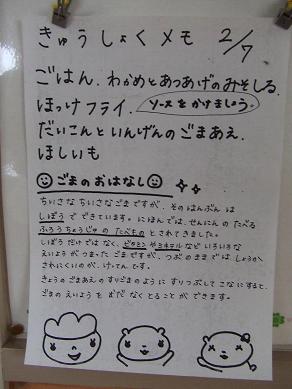 きゅうしょくメモ 2/7
ごはん．わかめとあつあげのみそしる．
ほっけフライ．ソースをかけましょう。
だいこんといんげんのごまあえ．
ほしいも
ごまのおはなし
ちいさなちいさなごまですが、そのはんぶんは
しぼうでできています。にほんでは、せんにんのたべる
ふろうちょうじゅのたべものとされてきました。
しぼうだけではなく、ビタミンやミネラルなどいろいろな
えいようがつまったごまですが、つぶのままではしょうか
されにくいのが、けってんです。
きょうのごまあえのすりごまのようにすりつぶしてこなにすると、
ごまのえいようをむだなくとることができます。